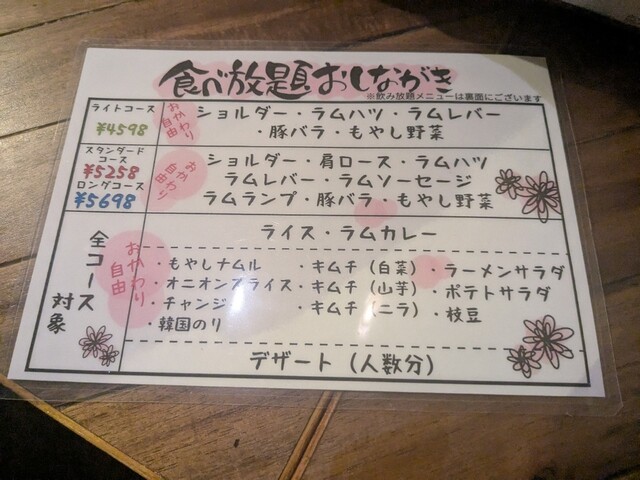 食べ放題おしながき
※飲み放題メニューは裏面にございます
ライトコース
¥4598
おかわり自由
ショルダー・ラムハツ・ラムレバー
・豚バラ・もやし野菜
スタンダードコース
¥5258
ロングコース
¥5698
おかわり自由
ショルダー・肩ロース・ラムハツ
ラムレバー・ラムソーセージ
ラムランプ・豚バラ・もやし野菜
全コース対象
おかわり自由
ライス・ラムカレー
・もやしナムル ・キムチ（白菜）・ラーメンサラダ
・オニオンスライス・キムチ（山芋）・ポテトサラダ
・チャンジャ ・キムチ（ニラ）・枝豆
・韓国のり
デザート（人数分）